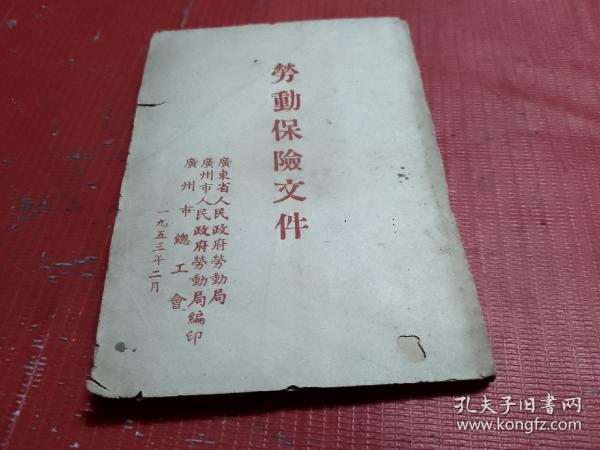 勞動保險文件
廣東省人民政府勞動局
廣州市人民政府勞動局編印
廣州市總工會
一九五三年二月
孔夫子旧书网
www.kongfz.com